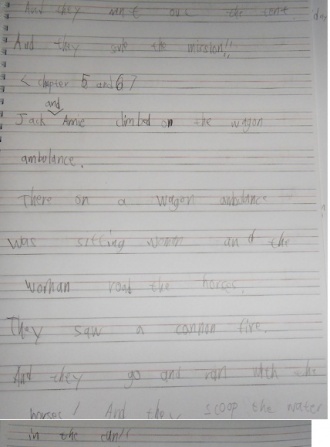 And they went out the tent.
And they sub the mission!!
< chapter 5 and 6 >
and
Jack Annie climbed on the wagon
ambulance.
There on a wagon ambulance
was sitting women and the
worhan road the horces.
They saw a cannon fire.
And they go and ran with the
horses! And they scoop the water
in the can!!